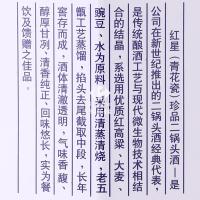 红星（青花瓷）珍品二锅头酒—是
公司在新世纪推出的二锅头酒经典代表，
是传统酿酒工艺与现代微生物技术相结
合的结晶，系选用优质红高粱、大麦、
豌豆、水为原料，采用清蒸清烧，老五
甑工艺蒸馏，掐头去尾截取中段，长年
窖存而成，酒体清澈透明，气味香馥、
醇厚甘洌，清香纯正、回味悠长，实为餐
饮及馈赠之佳品。